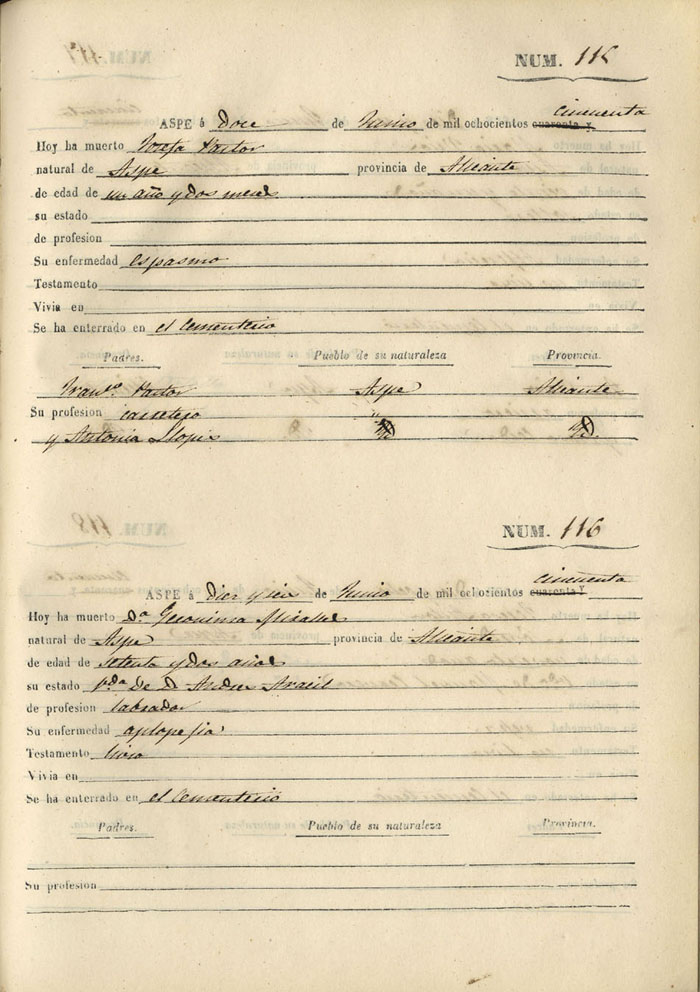 NUM. 115
cincuenta
ASPE á doce de Junio de mil ochocientos cuarenta y
Hoy ha muerto Josefa Pastor
natural de Aspe provincia de Alicante
de edad de un año y dos meses
su estado
de profesion
Su enfermedad espasmo
Testamento
Vivia en
Se ha enterrado en el Cementerio
Padres. Pueblo de su naturaleza Provincia.
Franco. Pastor Aspe Alicante
Su profesion carretero
y Antonia Llopis
NUM. 116
cincuenta
ASPE á diez y seis de Junio de mil ochocientos cuarenta y
Hoy ha muerto Da. Geronima Miralles
natural de Aspe provincia de Alicante
de edad de setenta y dos años
su estado Vda. de D. Andres
de profesion labrador
Su enfermedad aplopejia
Testamento hizo
Vivia en
Se ha enterrado en el Cementerio
Padres. Pueblo de su naturaleza Provincia.
Su profesion